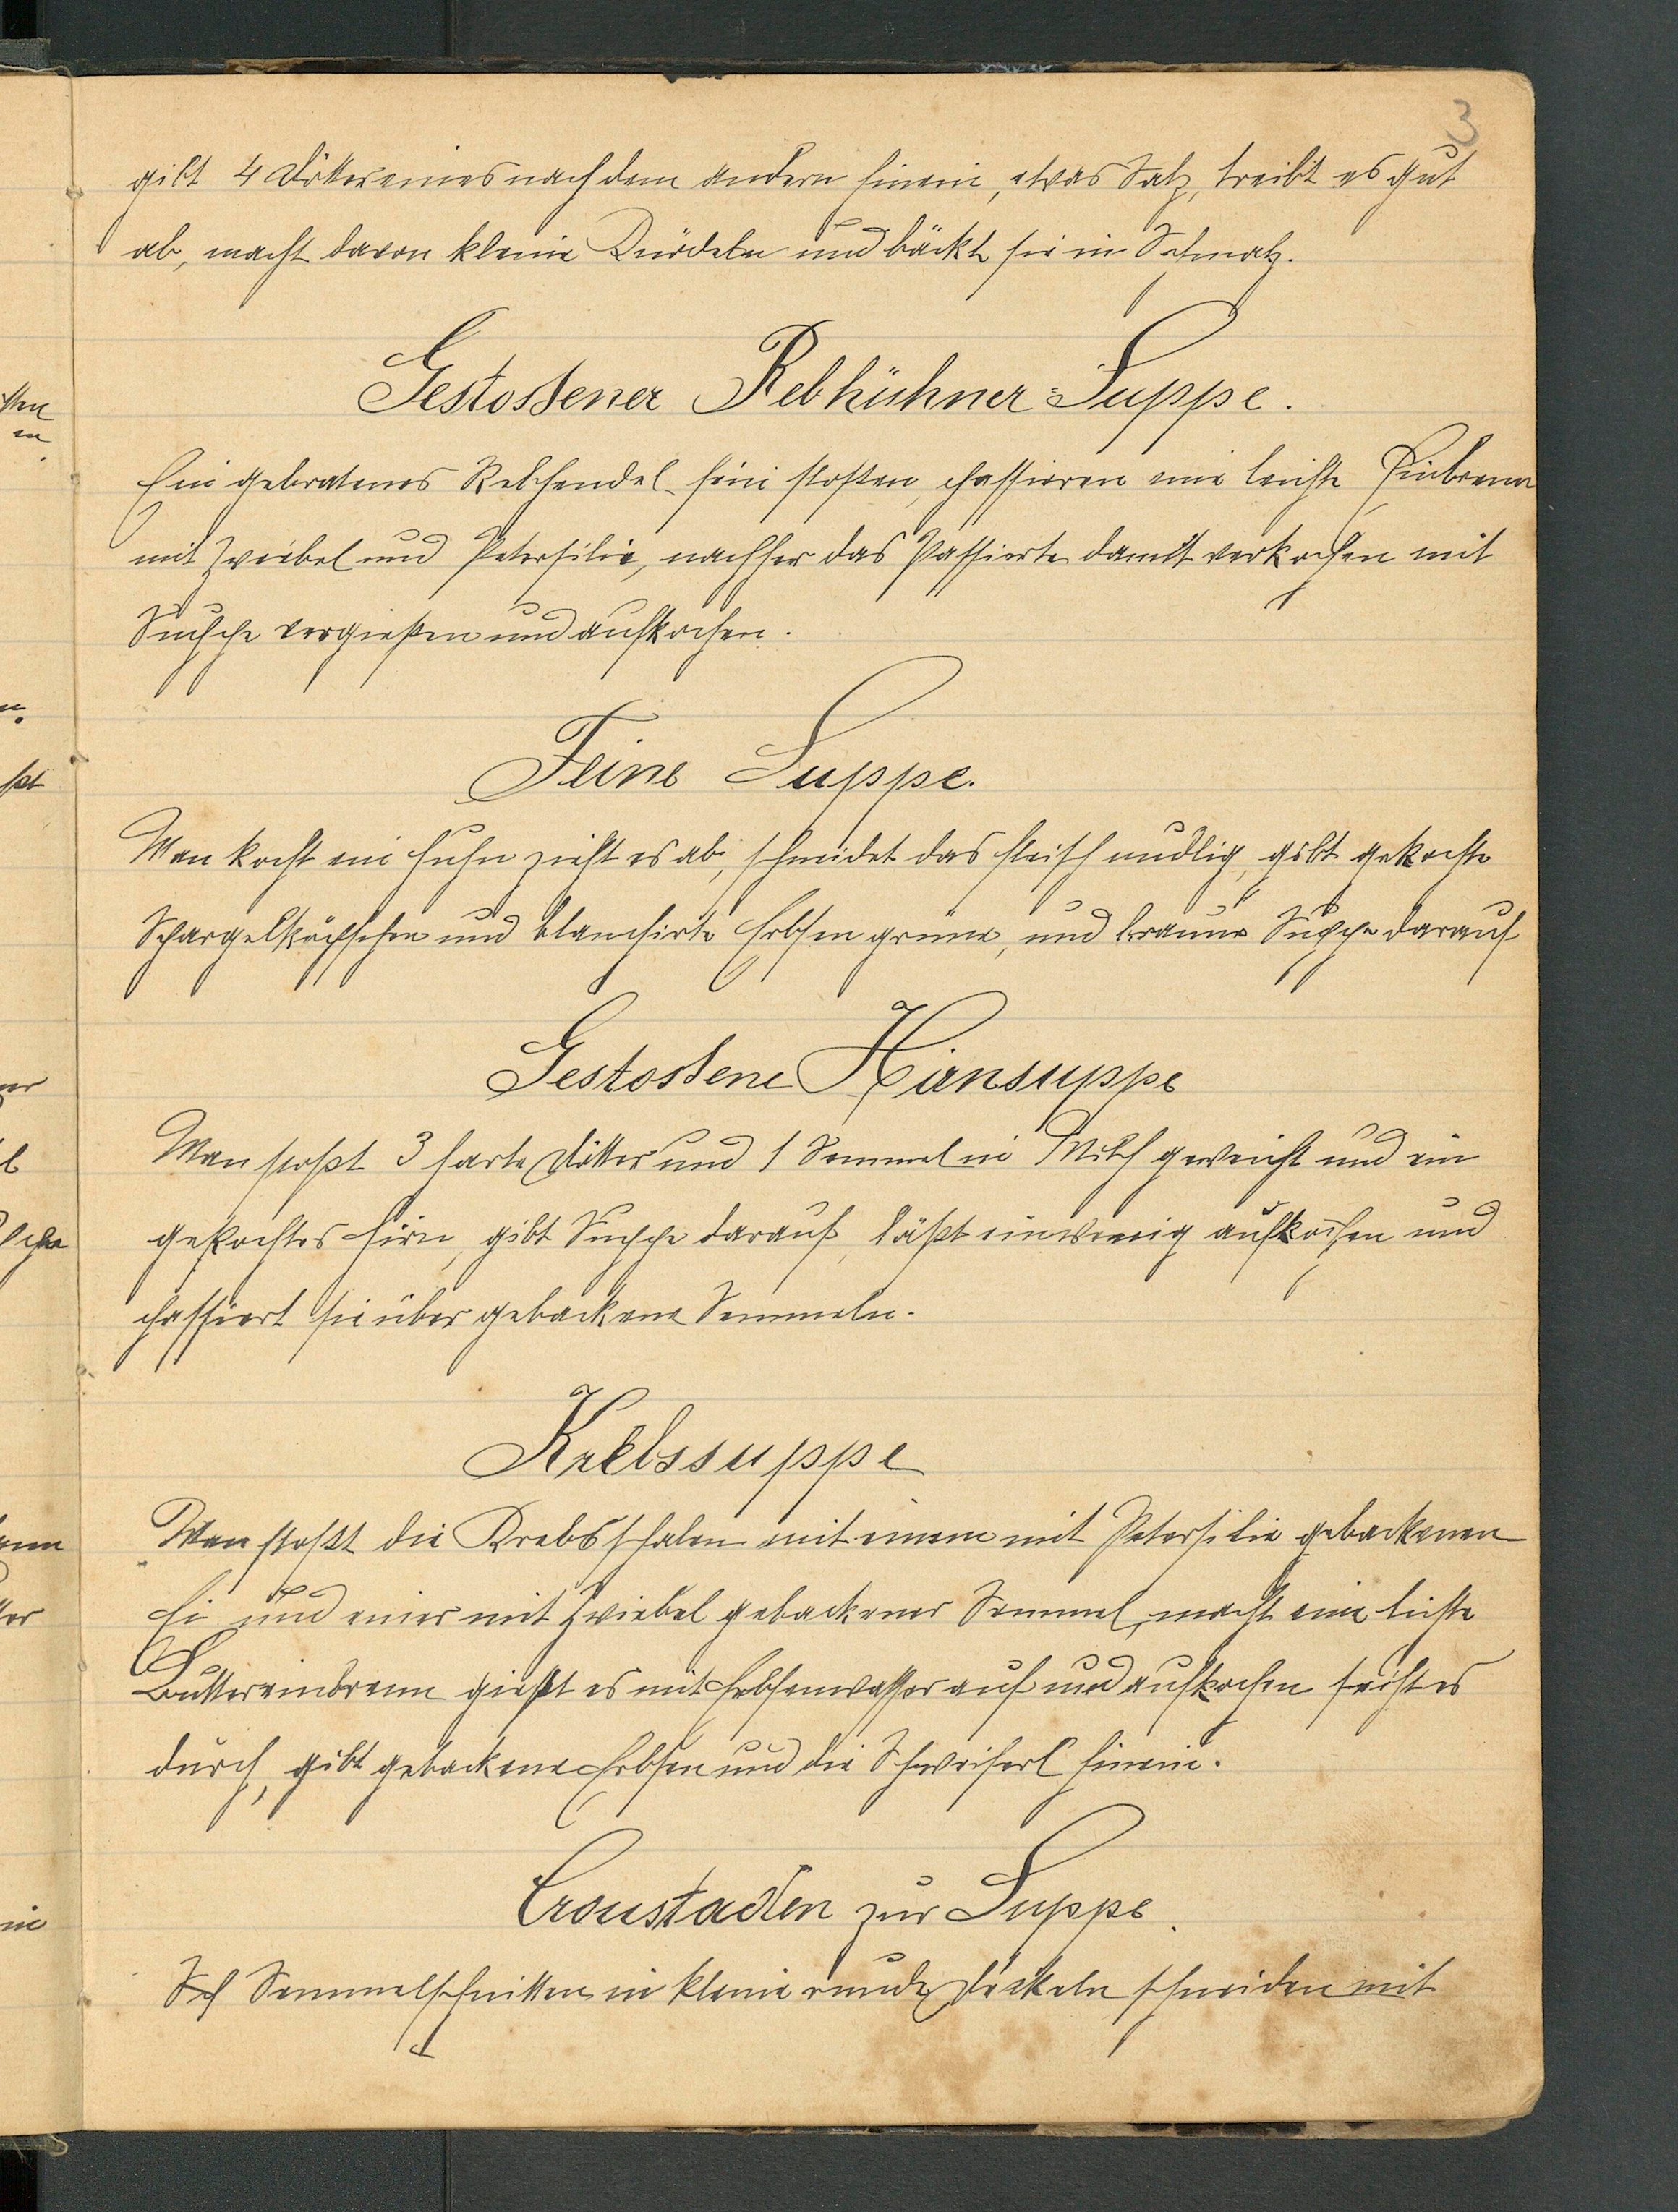 3
gibt 4 Dötter eines nach dem andern hinein, etwas Salz, treibt es gut
ab, macht davon kleine Knödeln und bäckt sie in Schmalz.
Gestossener Rebhühner=Suppe.
Ein gebratenes Rebhendel fein stoßen, passieren eine leichte Einbrenn
mit Zwiebel und Petersilie, nachher das Passierte damit verkochen mit
Suppe vergießen und aufkochen.
Feine Suppe.
Man kocht ein Huhn zieht es ab, schneidet das Fleisch nudlig, gibt gekochte
Spargelköpfchen und blanchirte Erbsen grüne, und braune Suppe darauf
Gestossene Hirnsuppe
Man stoßt 3 harte Dötter und 1 Semmel in Milch geweicht und ein
gekochtes Hirn, gibt Suppe darauf, läßt ein wenig aufkochen und
passiert sie über gebackene Semmeln.
Krebssuppe
Man stoßt die Krebsschalen mit einem mit Petersilie gebackenen
Ei und einer mit Zwiebel gebackener Semmel, macht eine lichte
Buttereinbrenn gießt es mit Erbsenwasser auf und aufkochen seiht es
durch, gibt gebackene Erbsen und die Schweiferl hinein.
Croustaden zur Suppe.
Semmelschnitten in kleine runde Fleckeln schneiden mit